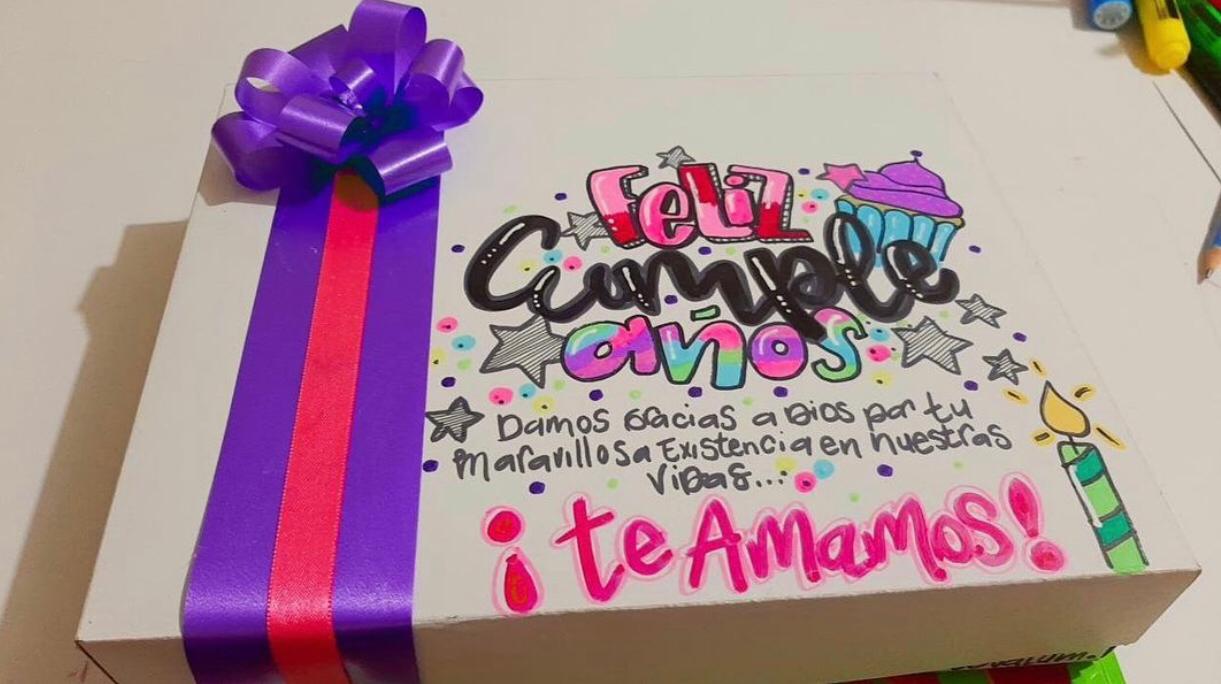 FeLiz
Cumple
años
Damos Gracias a Dios por tu
maravillosa Existencia en nuestras
ViDas...
¡te AmamoS!